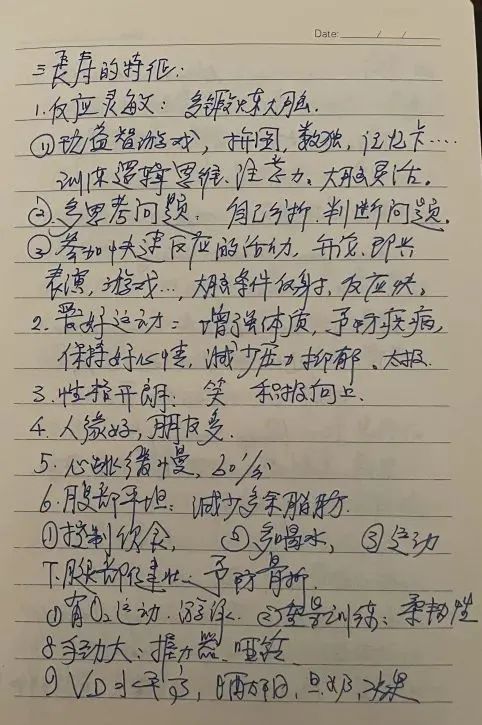 Date: / /
三長寿的特征:
1.反应灵敏: 多锻炼大脑.
①功益智游戏, 拼图, 数独, 记忆卡····
训练逻辑思维、注意力、大脑灵活。
②多思考问题: 自己分析.判断问题.
③参加快速反应的活动, 即兴
表演, 游戏..., 大脑条件反射, 反应快,
2.爱好运动: 增强体质, 予防疾病,
保持好心情, 减少压力抑郁、太极
3.性格开朗: 笑 积极向上.
4.人缘好, 朋友多.
5.心跳缓慢, 60'/分
6.腹部平坦: 减少多余脂肪.
①控制饮食, ②多喝水, ③运动
7.腿部健壮.. 予防骨折
①有O2运动.游泳. ②训练: 柔韧性
8手劲大: 握力器、哑铃
9 VD水平高, 晒太阳, 水果